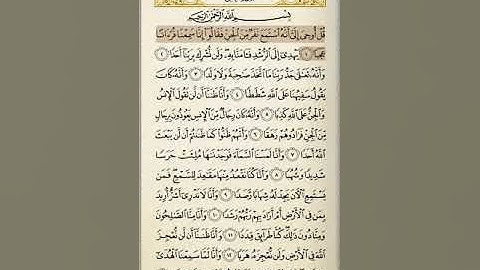 بِسْمِ اللَّهِ الرَّحْمَٰنِ الرَّحِيمِ
قُلْ أُوحِيَ إِلَيَّ أَنَّهُ اسْتَمَعَ نَفَرٌ مِّنَ الْجِنِّ فَقَالُوا إِنَّا سَمِعْنَا قُرْآنًا
عَجَبًا ١ يَهْدِي إِلَى الرُّشْدِ فَآمَنَّا بِهِ وَلَن نُّشْرِكَ بِرَبِّنَا أَحَدًا ٢
وَأَنَّهُ تَعَالَىٰ جَدُّ رَبِّنَا مَا اتَّخَذَ صَاحِبَةً وَلَا وَلَدًا ٣ وَأَنَّهُ كَانَ
يَقُولُ سَفِيهُنَا عَلَى اللَّهِ شَطَطًا ٤ وَأَنَّا ظَنَنَّا أَن لَّن تَقُولَ الْإِنسُ
وَالْجِنُّ عَلَى اللَّهِ كَذِبًا ٥ وَأَنَّهُ كَانَ رِجَالٌ مِّنَ الْإِنسِ يَعُوذُونَ بِرِجَالٍ
مِّنَ الْجِنِّ فَزَادُوهُمْ رَهَقًا ٦ وَأَنَّهُمْ ظَنُّوا كَمَا ظَنَنتُمْ أَن لَّن يَبْعَثَ
اللَّهُ أَحَدًا ٧ وَأَنَّا لَمَسْنَا السَّمَاءَ فَوَجَدْنَاهَا مُلِئَتْ حَرَسًا
شَدِيدًا وَشُهُبًا ٨ وَأَنَّا كُنَّا نَقْعُدُ مِنْهَا مَقَاعِدَ لِلسَّمْعِ فَمَن
يَسْتَمِعِ الْآنَ يَجِدْ لَهُ شِهَابًا رَّصَدًا ٩ وَأَنَّا لَا نَدْرِي أَشَرٌّ أُرِيدَ
بِمَن فِي الْأَرْضِ أَمْ أَرَادَ بِهِمْ رَبُّهُمْ رَشَدًا ١٠ وَأَنَّا مِنَّا الصَّالِحُونَ
وَمِنَّا دُونَ ذَٰلِكَ كُنَّا طَرَائِقَ قِدَدًا ١١ وَأَنَّا ظَنَنَّا أَن لَّن نُّعْجِزَ
اللَّهَ فِي الْأَرْضِ وَلَن نُّعْجِزَهُ هَرَبًا ١٢ وَأَنَّا لَمَّا سَمِعْنَا الْهُدَىٰ